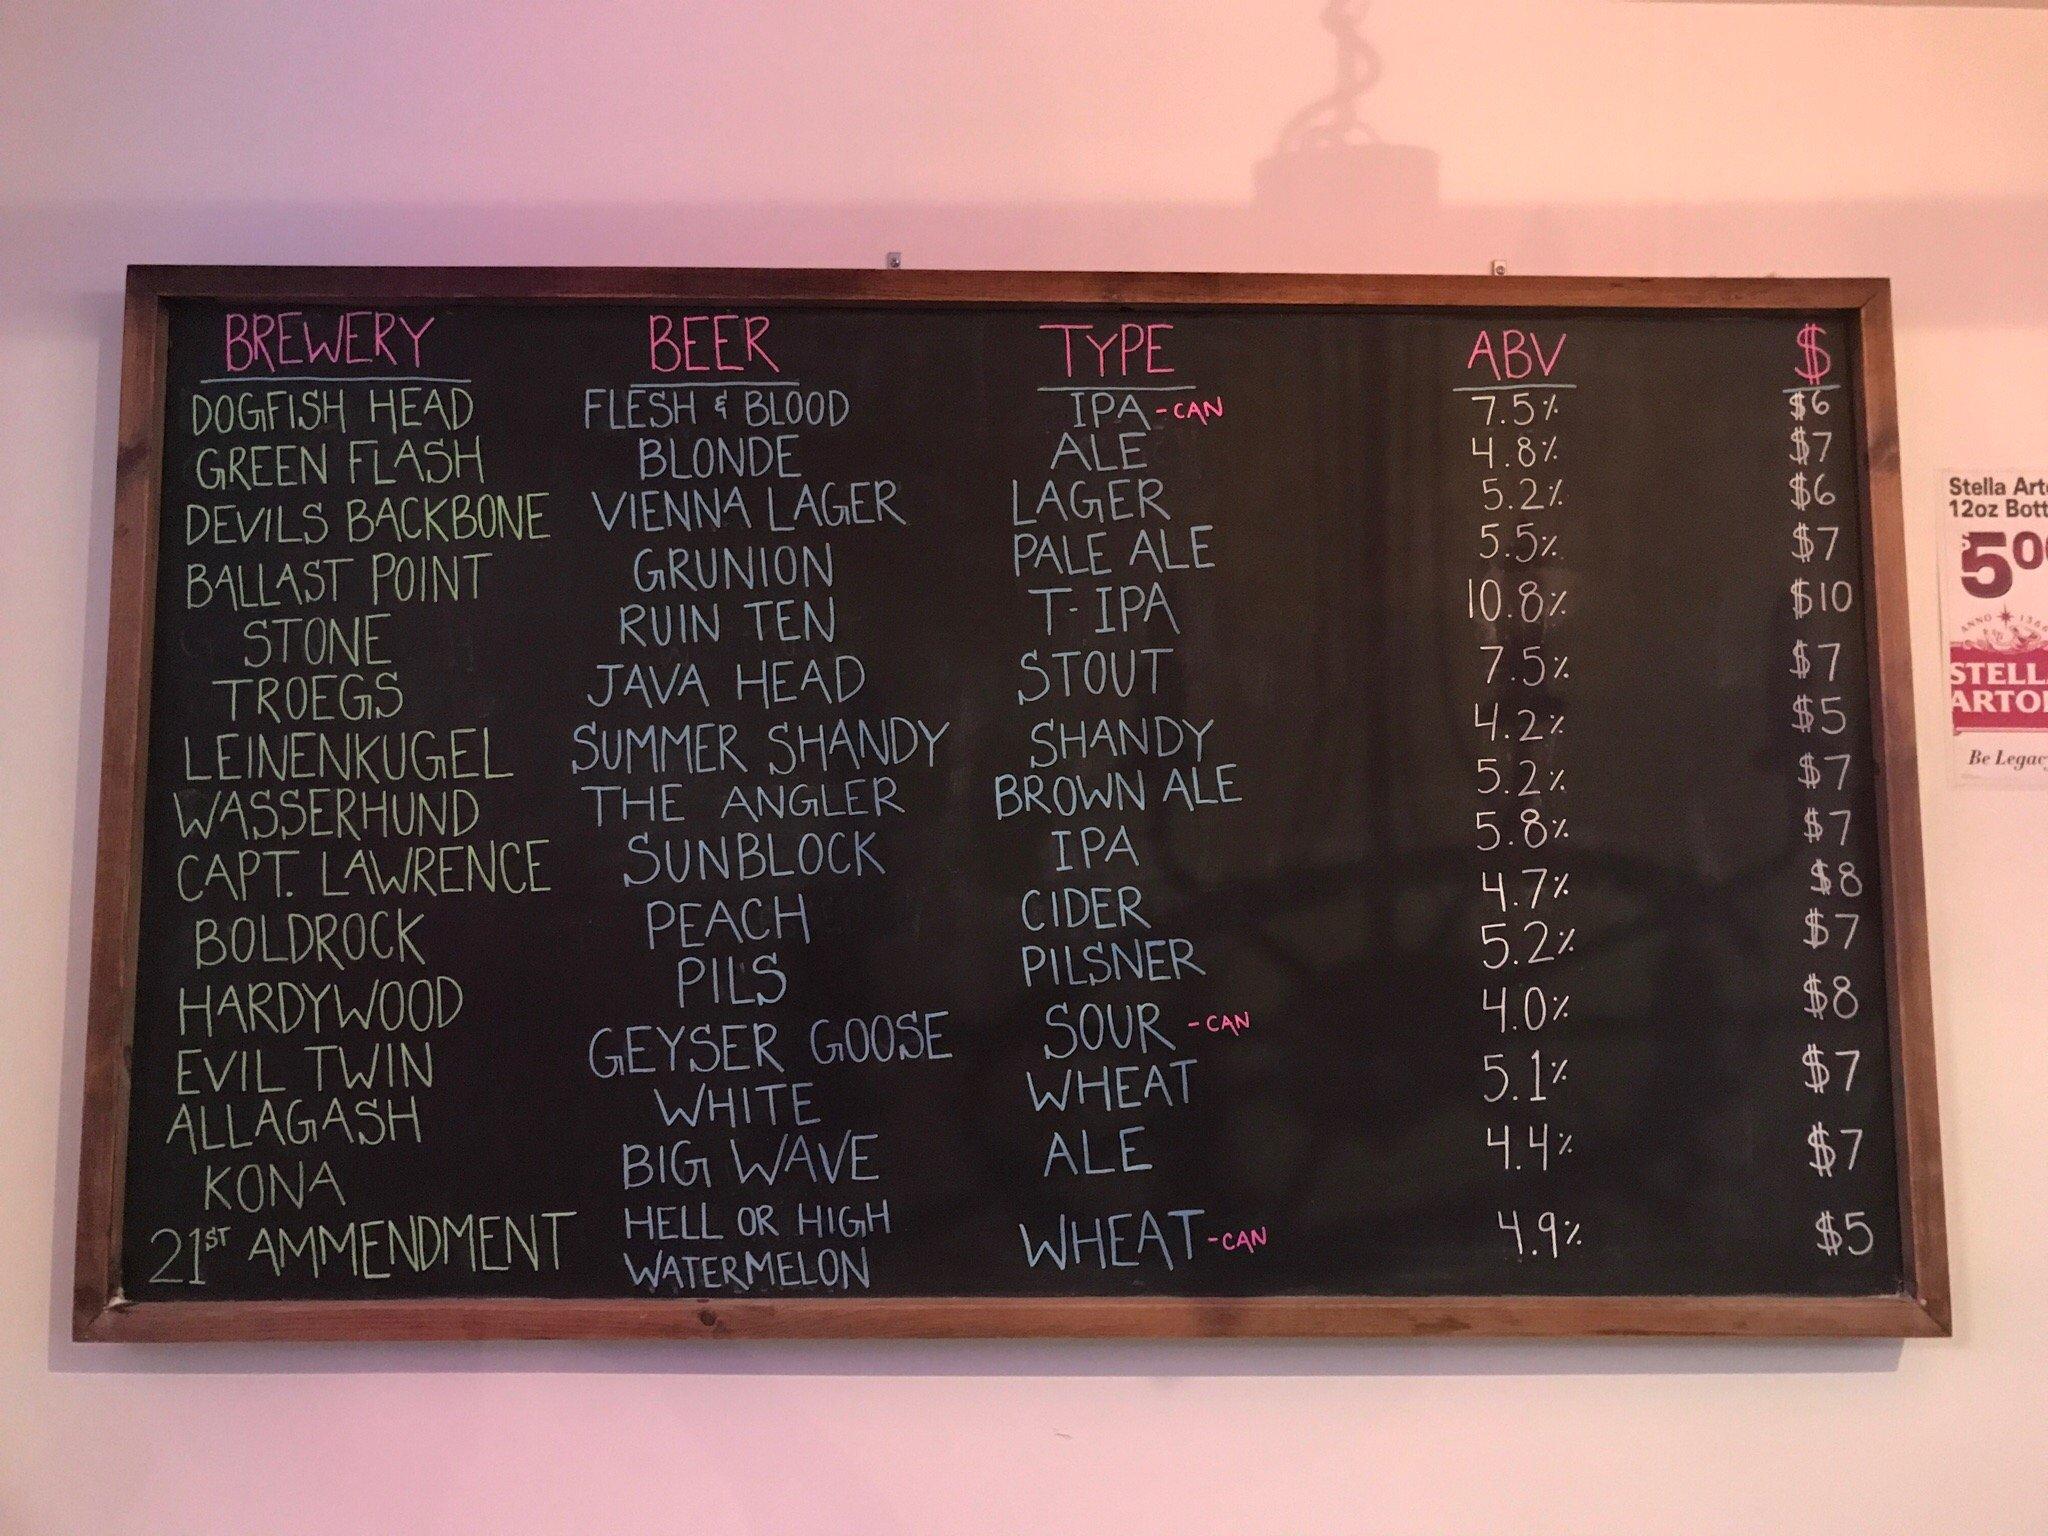 BREWERY BEER TYPE ABV $
DOGFISH HEAD FLESH & BLOOD IPA -CAN 7.5% $6
GREEN FLASH BLONDE ALE 4.8% $7
DEVILS BACKBONE VIENNA LAGER LAGER 5.2% $6
BALLAST POINT GRUNION PALE ALE 5.5% $7
STONE RUIN TEN T-IPA 10.8% $10
TROEGS JAVA HEAD STOUT 7.5% $7
LEINENKUGEL SUMMER SHANDY SHANDY 4.2% $5
WASSERHUND THE ANGLER BROWN ALE 5.2% $7
CAPT. LAWRENCE SUNBLOCK IPA 5.8% $7
BOLDROCK PEACH CIDER 4.7% $8
HARDYWOOD PILS PILSNER 5.2% $7
EVIL TWIN GEYSER GOOSE SOUR -CAN 4.0% $8
ALLAGASH WHITE WHEAT 5.1% $7
KONA BIG WAVE ALE 4.4% $7
21ST AMMENDMENT HELL OR HIGH WHEAT -CAN 4.9% $5
WATERMELON
Stella Arto
12oz Bott
$5.00
ANNO 1366
STELLA
ARTOI
Be Legacy